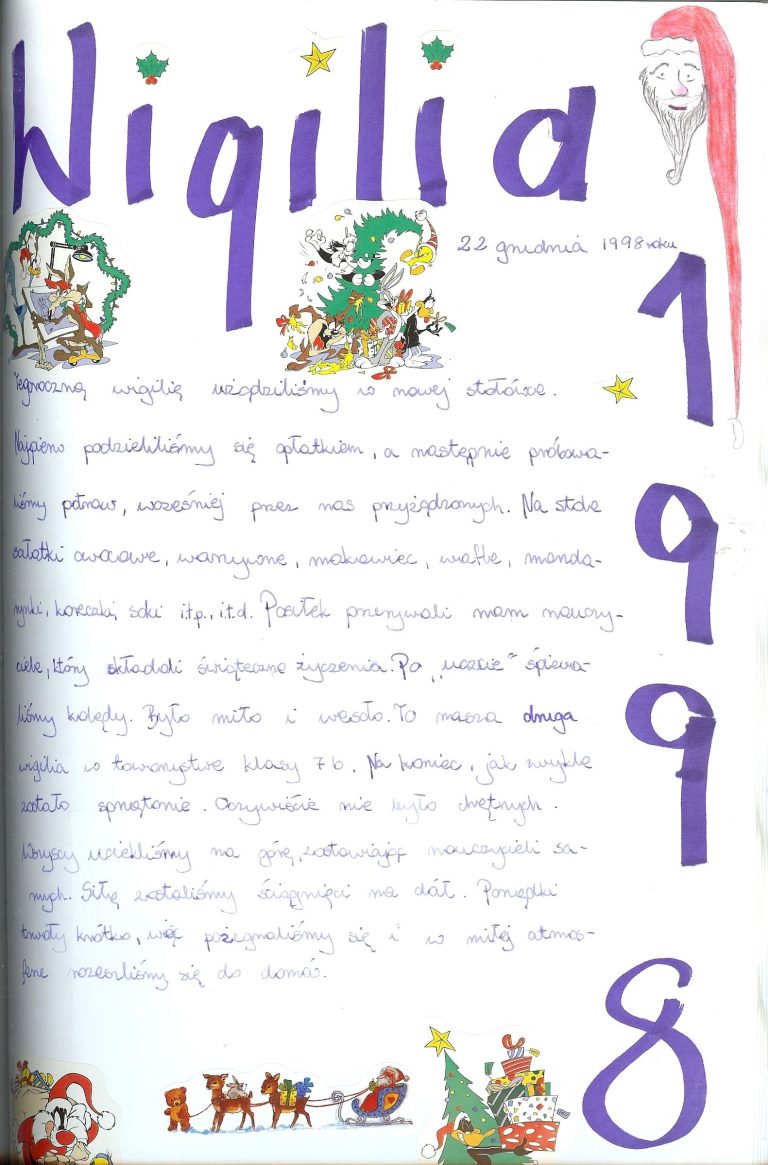 Wigilia
22 grudnia 1998 roku
1998
Tegoroczną wigilię urządziliśmy w nowej stołówce.
Najpierw podzieliliśmy się opłatkiem, a następnie próbowa-
liśmy potraw, wcześniej przez nas przyżądzonych. Na stole
sałatki owocowe, warzywne, makowiec, wafle, manda-
rynki, koreczki, soki i.t.p., i.t.d. Posiłek przerywali nam nauczy-
ciele, który składali świąteczne życzenia. Po "uczcie" śpiewa-
liśmy kolędy. Było miło i wesoło. To nasza druga
wigilia w towarzystwe klasy 7b. Na koniec, jak zwykle
zostało sprzątanie. Oczywiście nie było chętnych.
Wszyscy uciekliśmy na górę, zostawiając nauczycieli sa-
mych. Siłą zostaliśmy ściągnięci na dół. Porządki
trwały krótko, więc pożegnaliśmy się i w miłej atmos-
ferze rozeszliśmy się do domů.